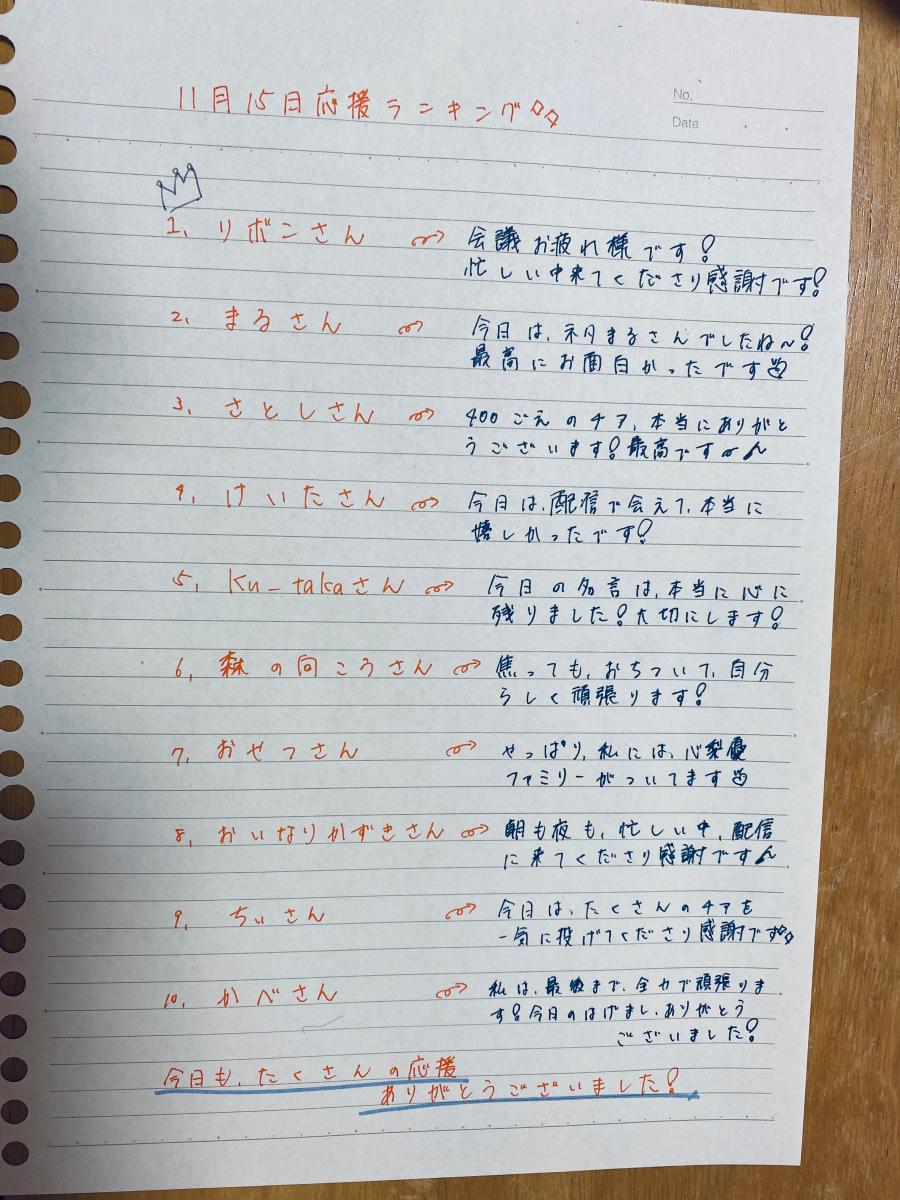 No.
Date
11月15日応援ランキング
1. リボンさん 会議お疲れ様です!
忙しい中来てくださり感謝です!
2. まるさん 今日は、ネタまるさんでしたね〜!
最高にお面白かったです
3. さとしさん 400ごえのチア、本当にありがと
うございます!最高です
4. けいたさん 今日は、配信で会えて、本当に
嬉しかったです!
5. Ku-takaさん 今日の名言は、本当に心に
残りました!大切にします!
6. 森の向こうさん 焦っても、おちついて、自分
らしく頑張ります!
7. おせつさん やっぱり、私には、心梨優
ファミリーがついてます
8. おいなりかずきさん 朝も夜も、忙しい中、配信
に来てくださり感謝です
9. ちぃさん 今日は、たくさんのチアを
一気に投げてくださり感謝です
10. かべさん 私は、最後まで、全力で頑張りま
す!今日のはげまし、ありがとう
ございました!
今日も、たくさんの応援
ありがとうございました!